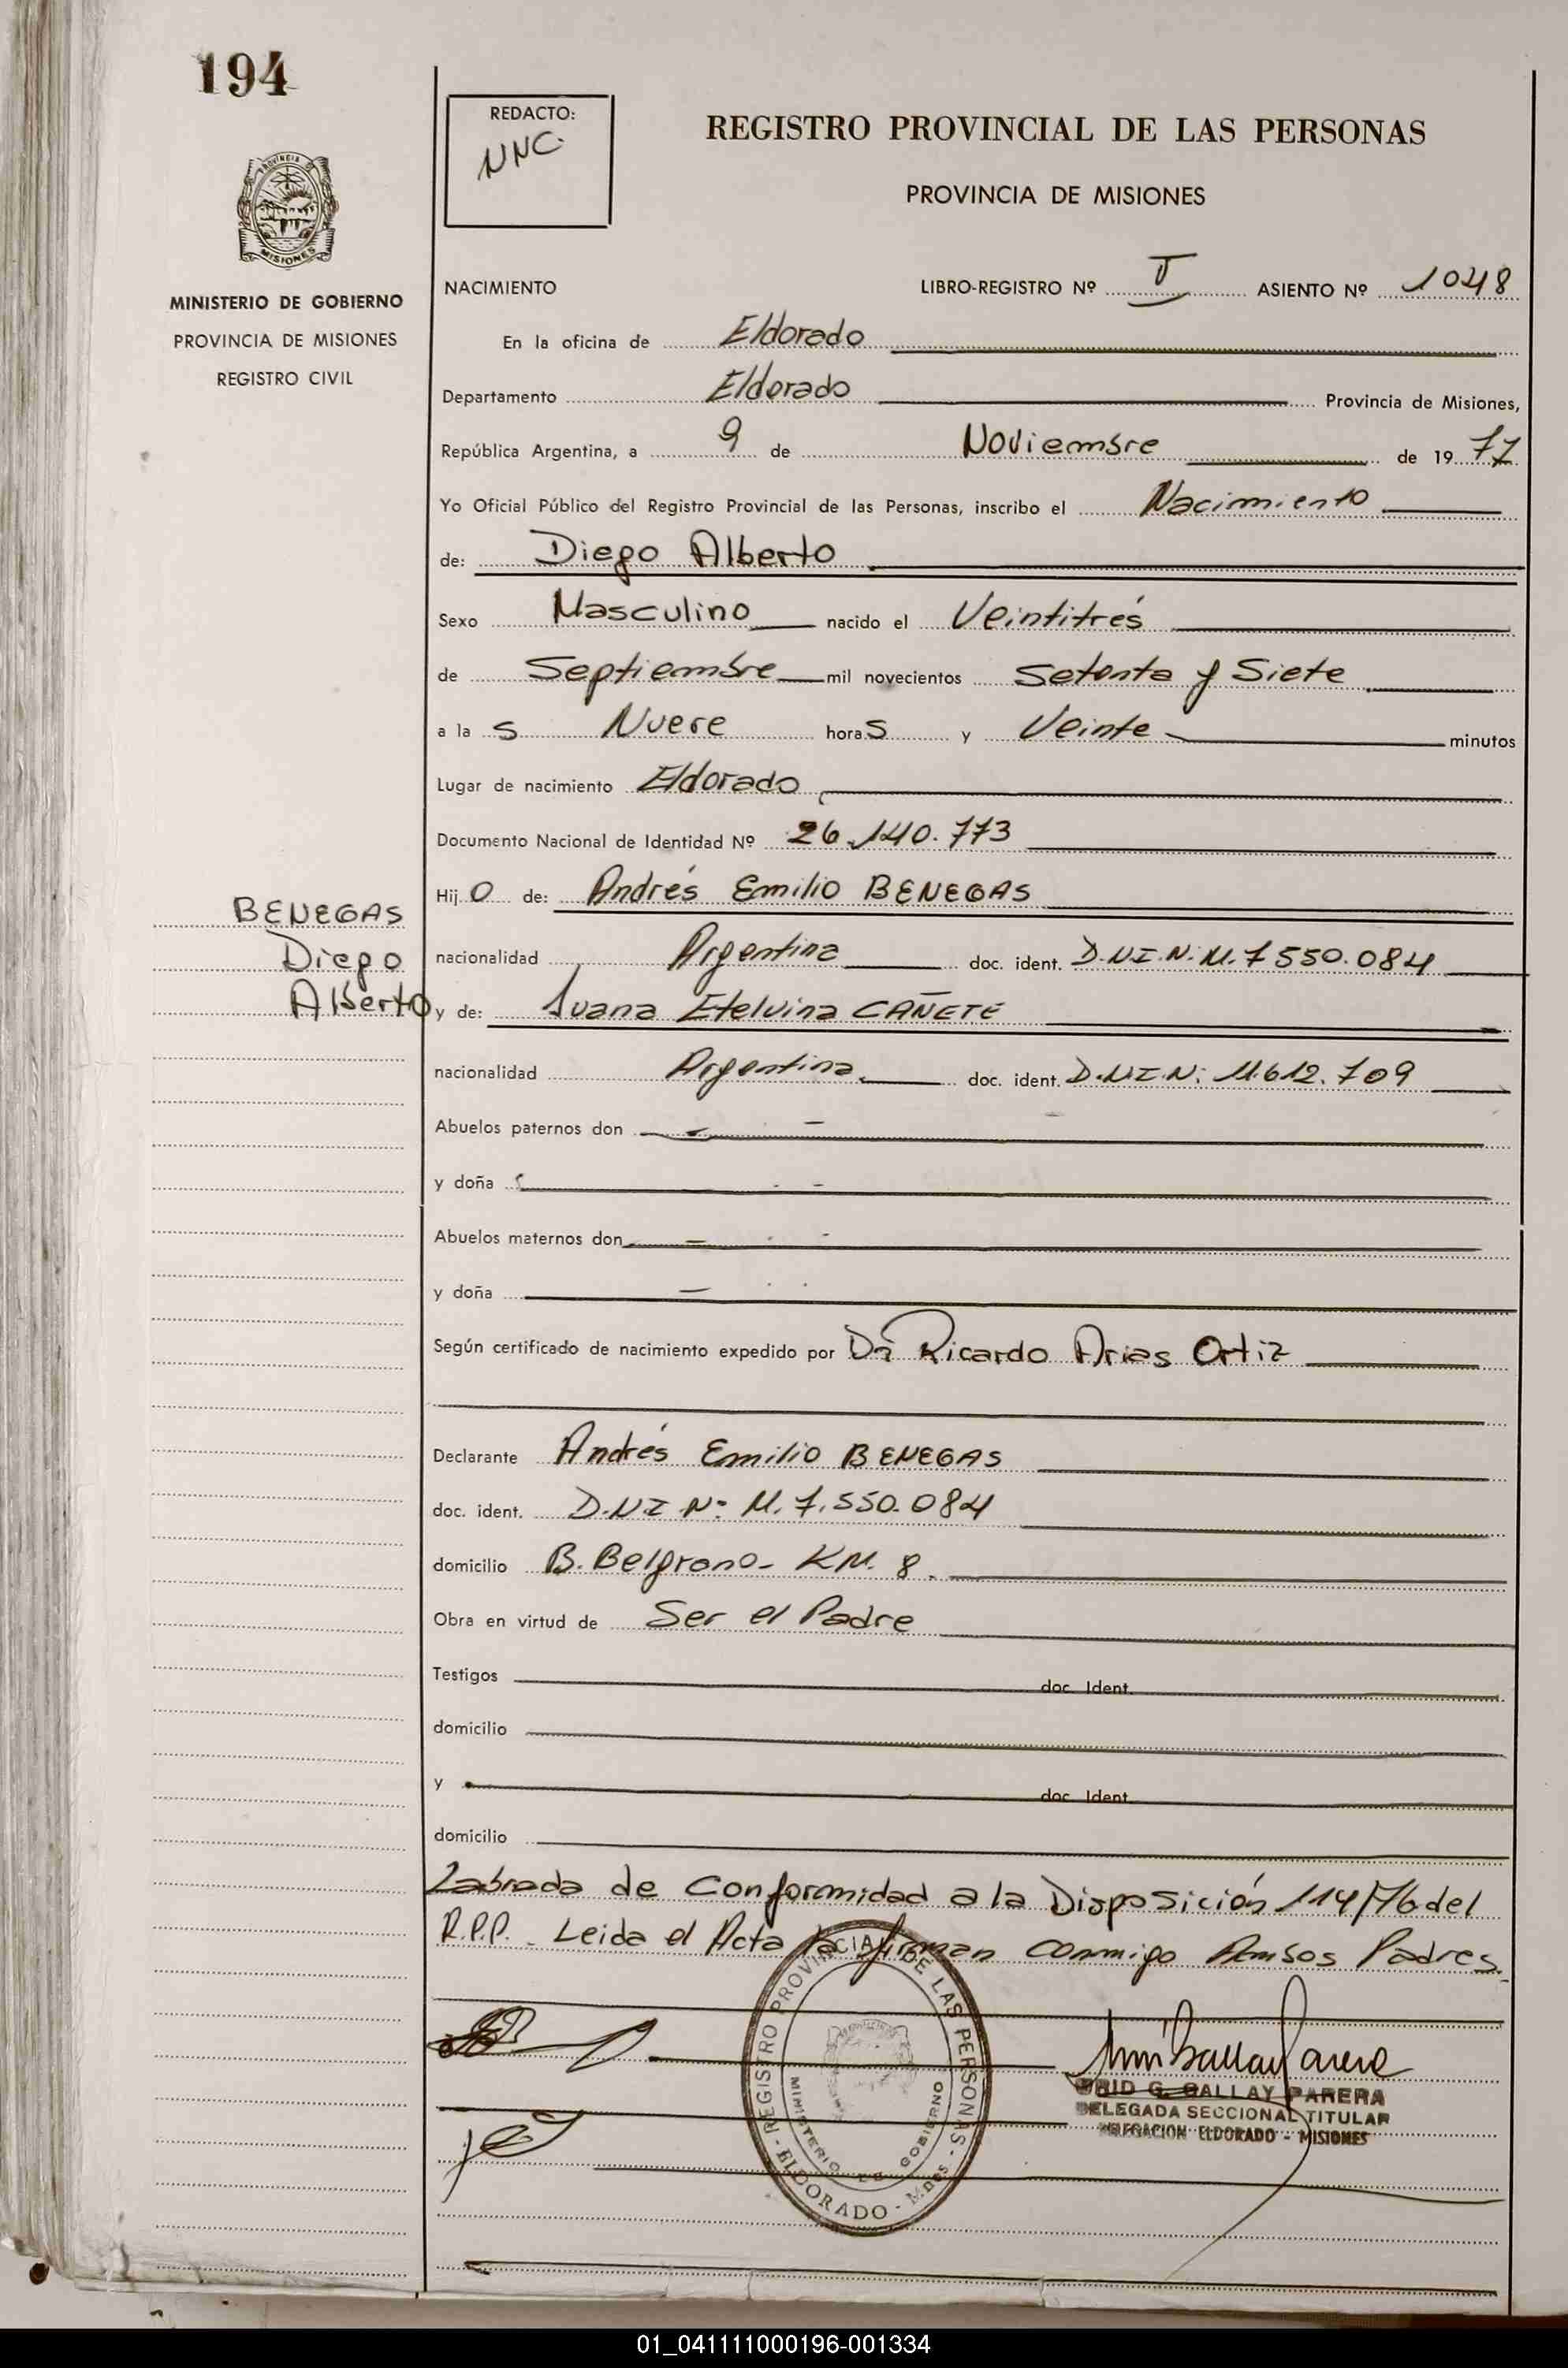 194
REDACTO:
NNC.
REGISTRO PROVINCIAL DE LAS PERSONAS
PROVINCIA DE MISIONES
PROVINCIA
MISIONES
MINISTERIO DE GOBIERNO
PROVINCIA DE MISIONES
REGISTRO CIVIL
NACIMIENTO LIBRO-REGISTRO Nº I ASIENTO Nº 1048
En la oficina de Eldorado
Departamento Eldorado Provincia de Misiones,
República Argentina, a 9 de Noviembre de 19 77
Yo Oficial Público del Registro Provincial de las Personas, inscribo el Nacimiento
de: Diego Alberto
Sexo Masculino nacido el Veintitrés
de Septiembre mil novecientos Setenta y Siete
a la s Nueve hora s y Veinte minutos
Lugar de nacimiento Eldorado
Documento Nacional de Identidad Nº 26.140.773
Hij o de: Andrés Emilio BENEGAS
BENEGAS
Diego
Alberto
nacionalidad Argentina doc. ident. D.N.I.N. M. 7550.084
y de: Juana Etelvina CAÑETE
nacionalidad Argentina doc. ident. D.N.I.N: 11.612.709
Abuelos paternos don
y doña
Abuelos maternos don
y doña
Según certificado de nacimiento expedido por Dr Ricardo Arias Ortiz
Declarante Andrés Emilio BENEGAS
doc. ident. D.N.I Nº M. 7.550.084
domicilio B. Belgrano - KM. 8.
Obra en virtud de Ser el Padre
Testigos doc. Ident.
domicilio
y doc. Ident.
domicilio
Labrada de Conformidad a la Disposición 114/76 del
R.P.P. - Leida el Acta la firman conmigo Ambos Padres.
REGISTRO PROVINCIAL DE LAS PERSONAS - ELDORADO - Mnes. -
MINISTERIO DE GOBIERNO
G. GALLAY PARERA
DELEGADA SECCIONAL TITULAR
DELEGACION ELDORADO - MISIONES
01_041111000196-001334